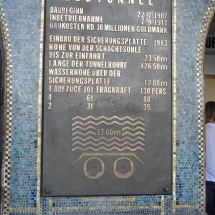 BAUBEGINN 22.7.1907
INBETRIEBNAHME 7.9.1911
BAUKOSTEN RD. 10 MILLIONEN GOLDMARK
EINBAU DER SICHERUNGSPLATTE 1983
HÖHE VON DER SCHACHTSOHLE
BIS ZUR EINFAHRT 23.50m
LÄNGE DER TUNNELROHRE 426.50m
WASSERHÖHE ÜBER DER
SICHERUNGSPLATTE 12.00m
4 AUFZÜGE 10t TRAGKRAFT 130 PERS
2 6t 80
2 39
12.00m